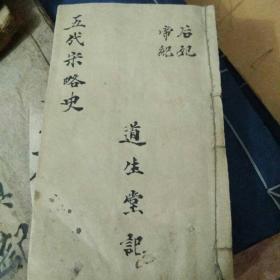 后妃
帝紀
五代宋略史
道生堂記